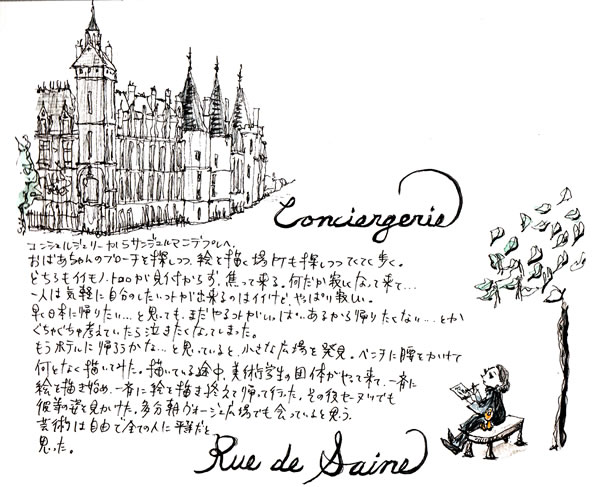 Conciergerie
コンシェルジェリーからサンジェルマンデプレへ。
おばあちゃんのブローチを探しつつ、絵を描く場所も探しつつてくてく歩く。
どちらもイイモノ・トコロが見付からず、焦って来る。何だか寂しくなって来て…
一人は気軽に自分のしたいコトが出来るのはイイけど、やっぱり寂しい。
早く日本に帰りたい…と思っても、まだやるコトがいっぱいあるから帰りたくない…とか
ぐちゃぐちゃ考えていたら泣きたくなてしまった。
もうホテルに帰ろうかな…と思っていると、小さな広場を発見。ベンチに腰をかけて
何となく描いてみた。描いている途中、美術学生の団体がやって来て、一斉に
絵を描き始め、一斉に絵を描き終えて帰って行った。その後セーヌでも
彼等の姿を見かけた。多分朝ヴォージュ広場でも会っていると思う。
芸術は自由で全ての人に平等だと
思った。
Rue de Saine